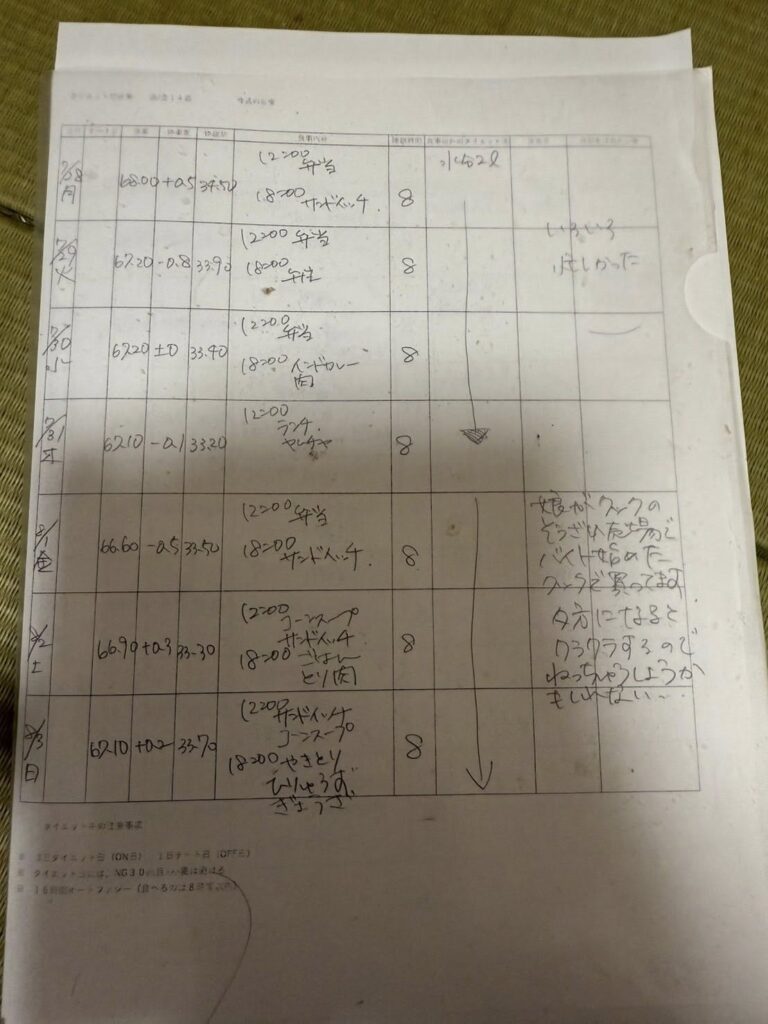 体重 体重差 体脂肪 食事内容 睡眠時間
7/28 月 68.00 +0.5 34.50 12:00 弁当 18:00 サンドイッチ 8 水分2ℓ
7/29 火 67.20 -0.8 33.90 12:00 弁当 18:00 8 いろいろ忙しかった
7/30 水 67.20 ±0 33.40 12:00 弁当 18:00 インドカレー 肉 8
7/31 木 67.10 -0.1 33.20 12:00 ランチ 8
8/1 金 66.60 -0.5 33.50 12:00 弁当 18:00 サンドイッチ 8
娘がクックの
そうざい売場で
バイト始めた
8/2 土 66.90 +0.3 33.30 12:00 コーンスープ サンドイッチ 18:00 ごはん とり肉 8
夕方になると
クラクラするので
ねっちゅうしょうか
もしれない…
8/3 日 67.10 +0.2 33.70 12:00 サンドイッチ コーンスープ 18:00 やきとり ひりゅうず ぎょうざ 8
ダイエット中の注意事項
ダイエット日(ON日) 1日チート日(OFF日)
16時間オートファジー(食べるのは8時間以内)